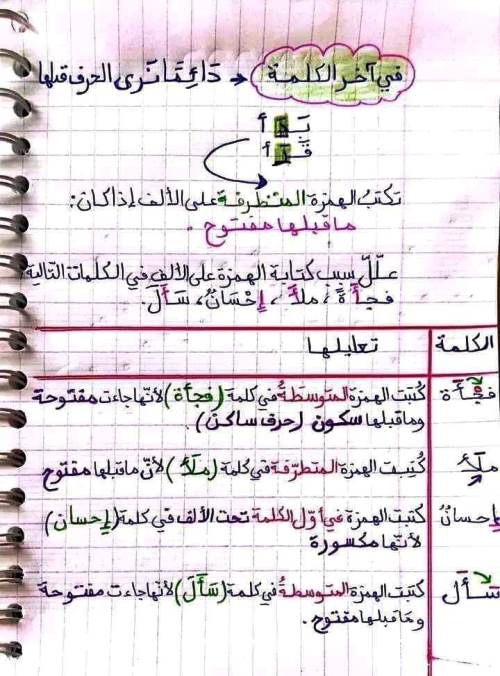 في آخر الكلمة ← دَائِمًا نَرى الحرف قبلها
بَدَأ
قَرَأ
تكتبُ الهمزة المتطرفة على الألف إذا كان:
ما قبلها مفتوح.
علّلّ سبب كتابة الهمزة على الألف في الكلمات التالية
فجأَةً، ملأَ، إِحْسَانٌ، سَأَلَ.
الكلمة تعليلها
فجْأَة كُتبت الهمزة المتوسطةُ في كلمة (فجأة) لأنّها جاءت مفتوحة
وما قبلها سكون (حرف ساكن).
ملَأَ كُتِبت الهمزة المتطرّفة في كلمة (ملَأَ) لأنّ ما قبلها مفتوح
إحسانٌ كتبت الهمزة في أوّل الكلمة تحت الألف في كلمة (إحسان)
لأنّها مكسورة
سَأَل كتبت الهمزة المتوسطةُ في كلمة (سَأَلَ) لأنّها جاءت مفتوحة
ومَا قبلها مفتوح.